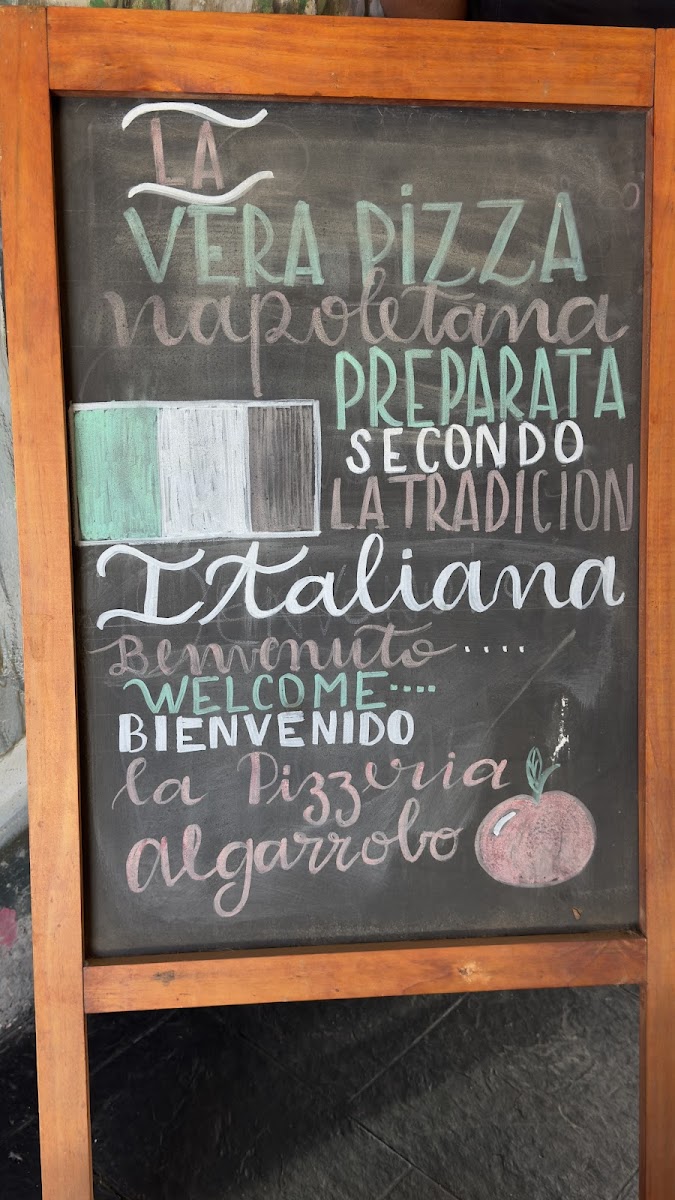 LA
VERA PIZZA
napoletana
PREPARATA
SECONDO
LA TRADICION
Italiana
Benvenuto ....
WELCOME ....
BIENVENIDO
la Pizzeria
Algarrobo